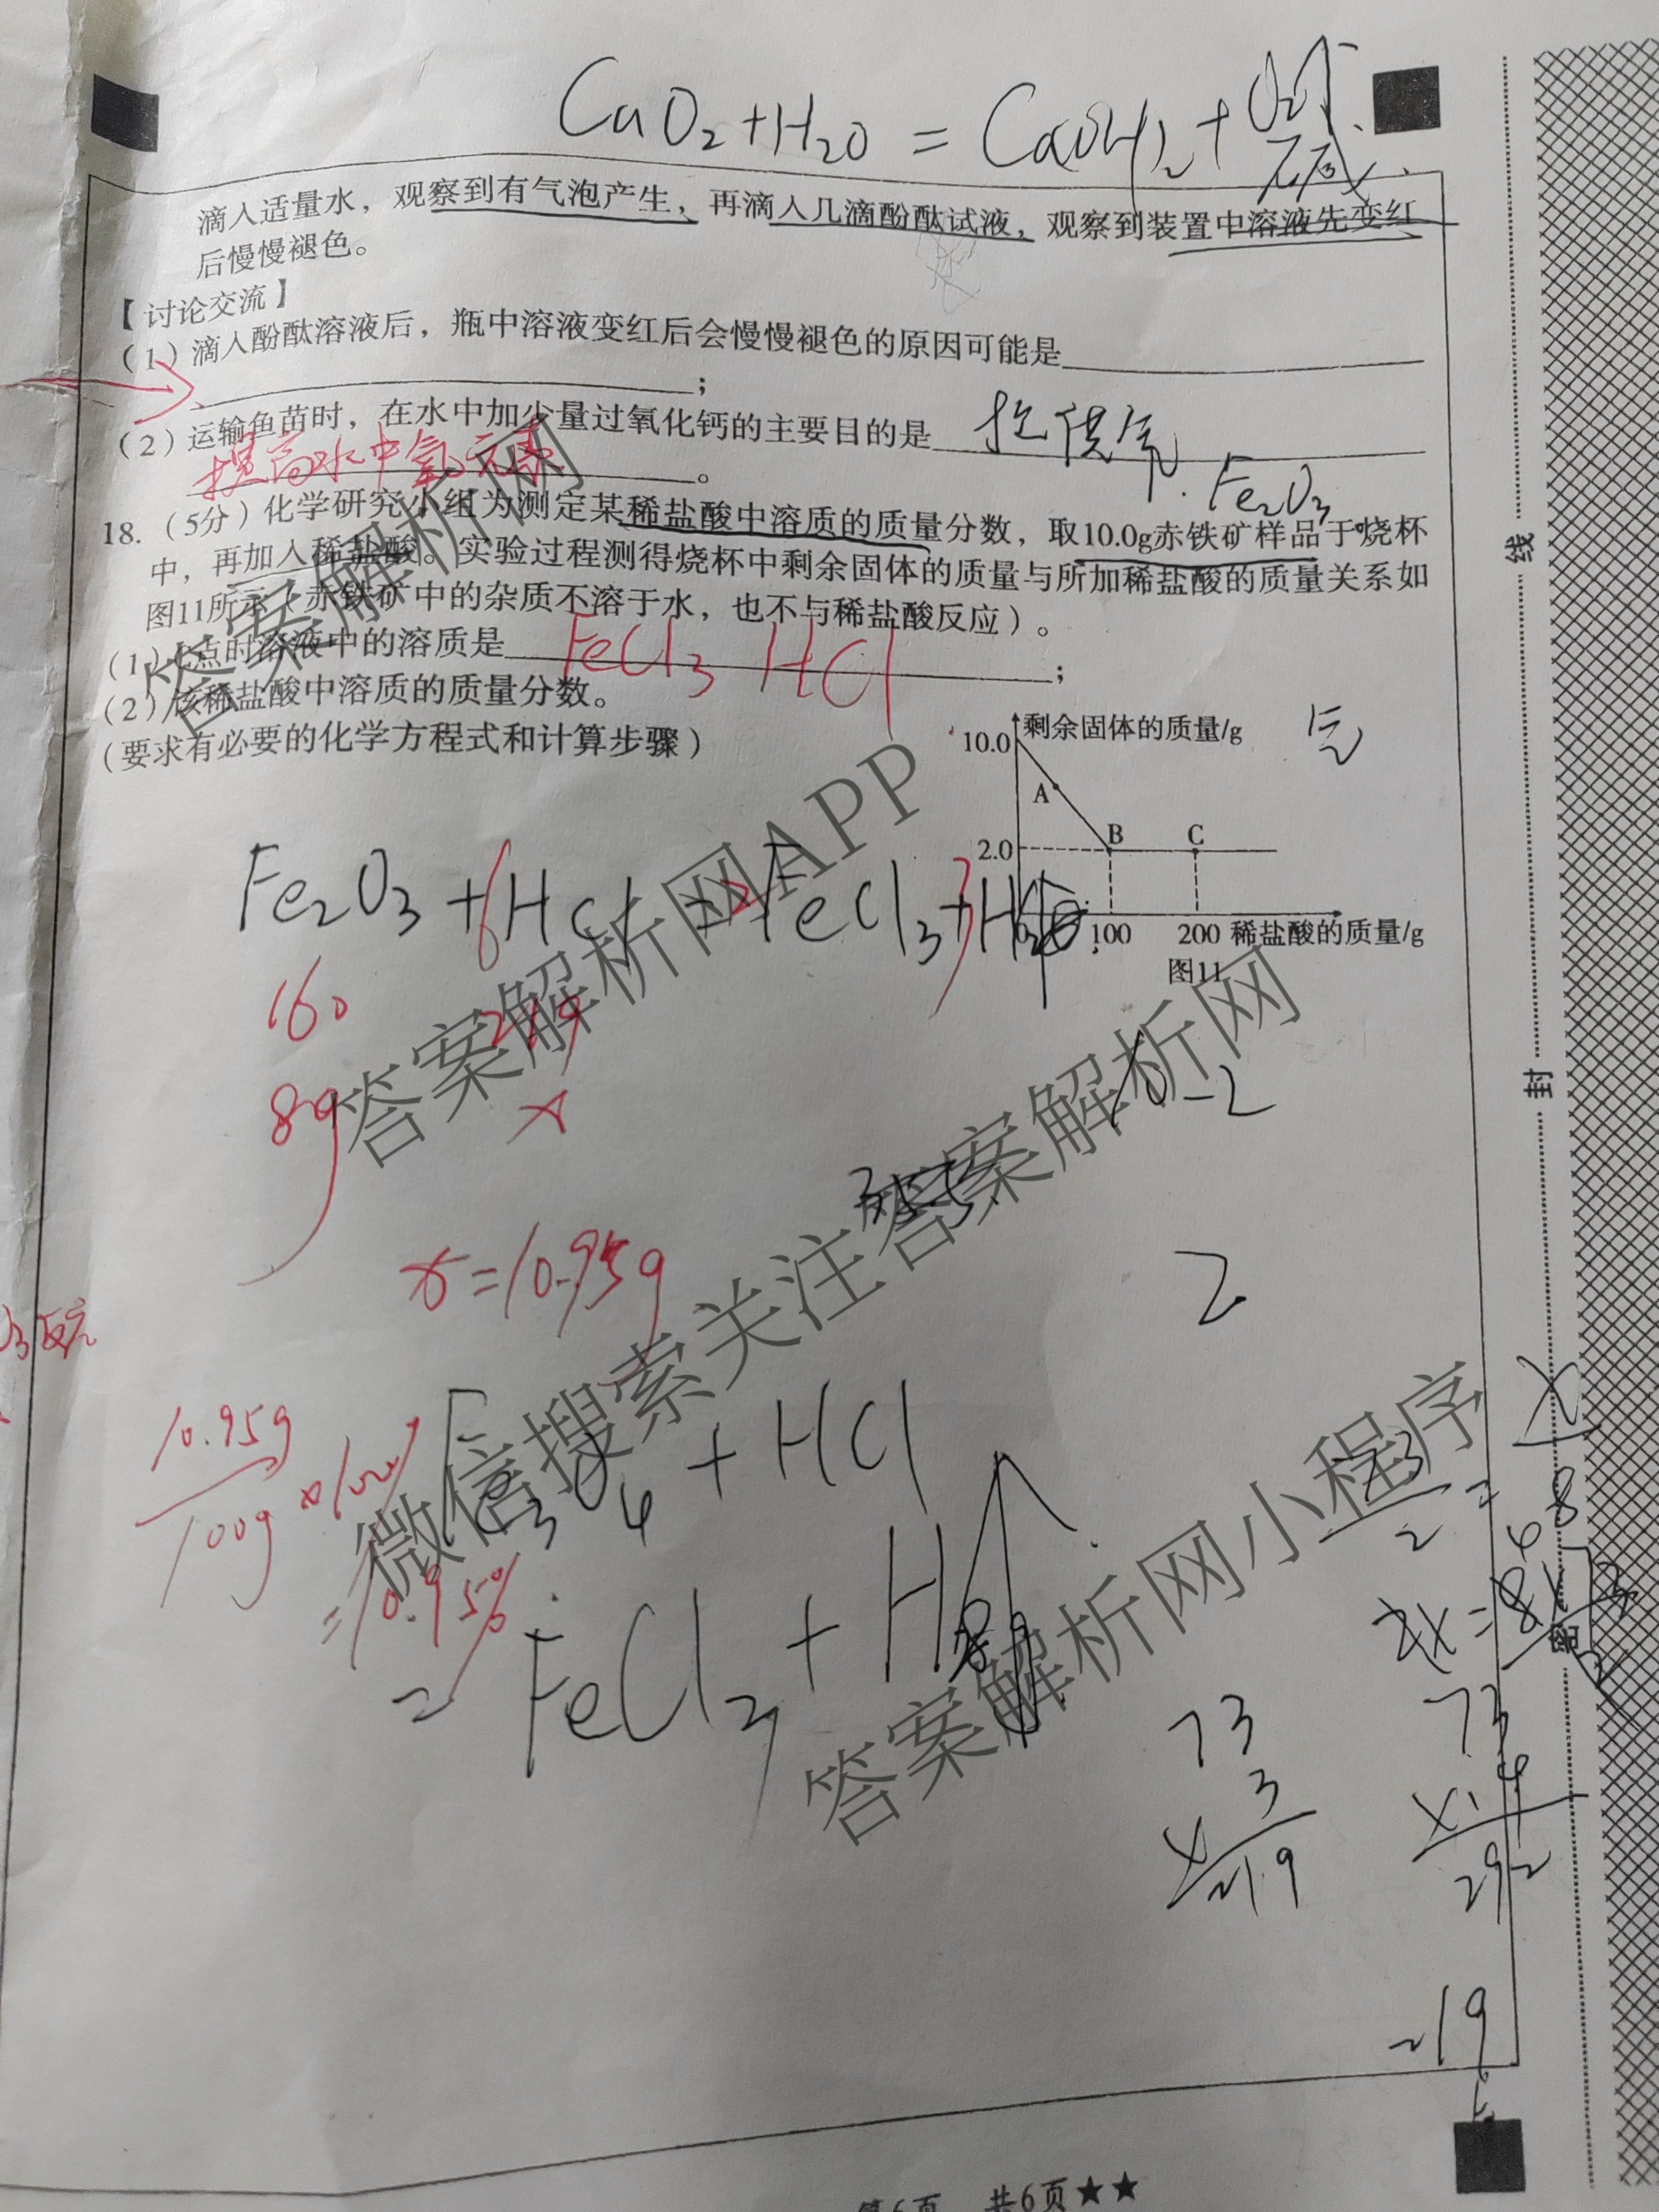 CaO₂+H₂O = Ca(OH)₂+O₂↑
碱
滴入适量水，观察到有气泡产生，再滴入几滴酚酞试液，观察到装置中溶液先变红
后慢慢褪色。
【讨论交流】
（1）滴入酚酞溶液后，瓶中溶液变红后会慢慢褪色的原因可能是
；
（2）运输鱼苗时，在水中加少量过氧化钙的主要目的是 供氧
提高水中氧元素。
Fe₂O₃
18.（5分）化学研究小组为测定某稀盐酸中溶质的质量分数，取10.0g赤铁矿样品于烧杯
中，再加入稀盐酸。实验过程测得烧杯中剩余固体的质量与所加稀盐酸的质量关系如
图11所示（赤铁矿中的杂质不溶于水，也不与稀盐酸反应）。
（1）点时溶液中的溶质是 FeCl₃ HCl；
（2）该稀盐酸中溶质的质量分数。
（要求有必要的化学方程式和计算步骤）
剩余固体的质量/g
10.0
A
B
C
2.0
0
100
200
稀盐酸的质量/g
图11
Fe₂O₃+6HCl=2FeCl₃+3H₂O
160 219
8g x
10-2
x=10.95g
2
10.95g
100g
×100%
=10.95%
Fe₃O₄+HCl
=FeCl₃+H
73
3
×
219
73
×4
292
219
线
封
密
答案解析网
答案解析网APP
微信搜索关注答案解析网
答案解析网小程序
第6页 共6页★★